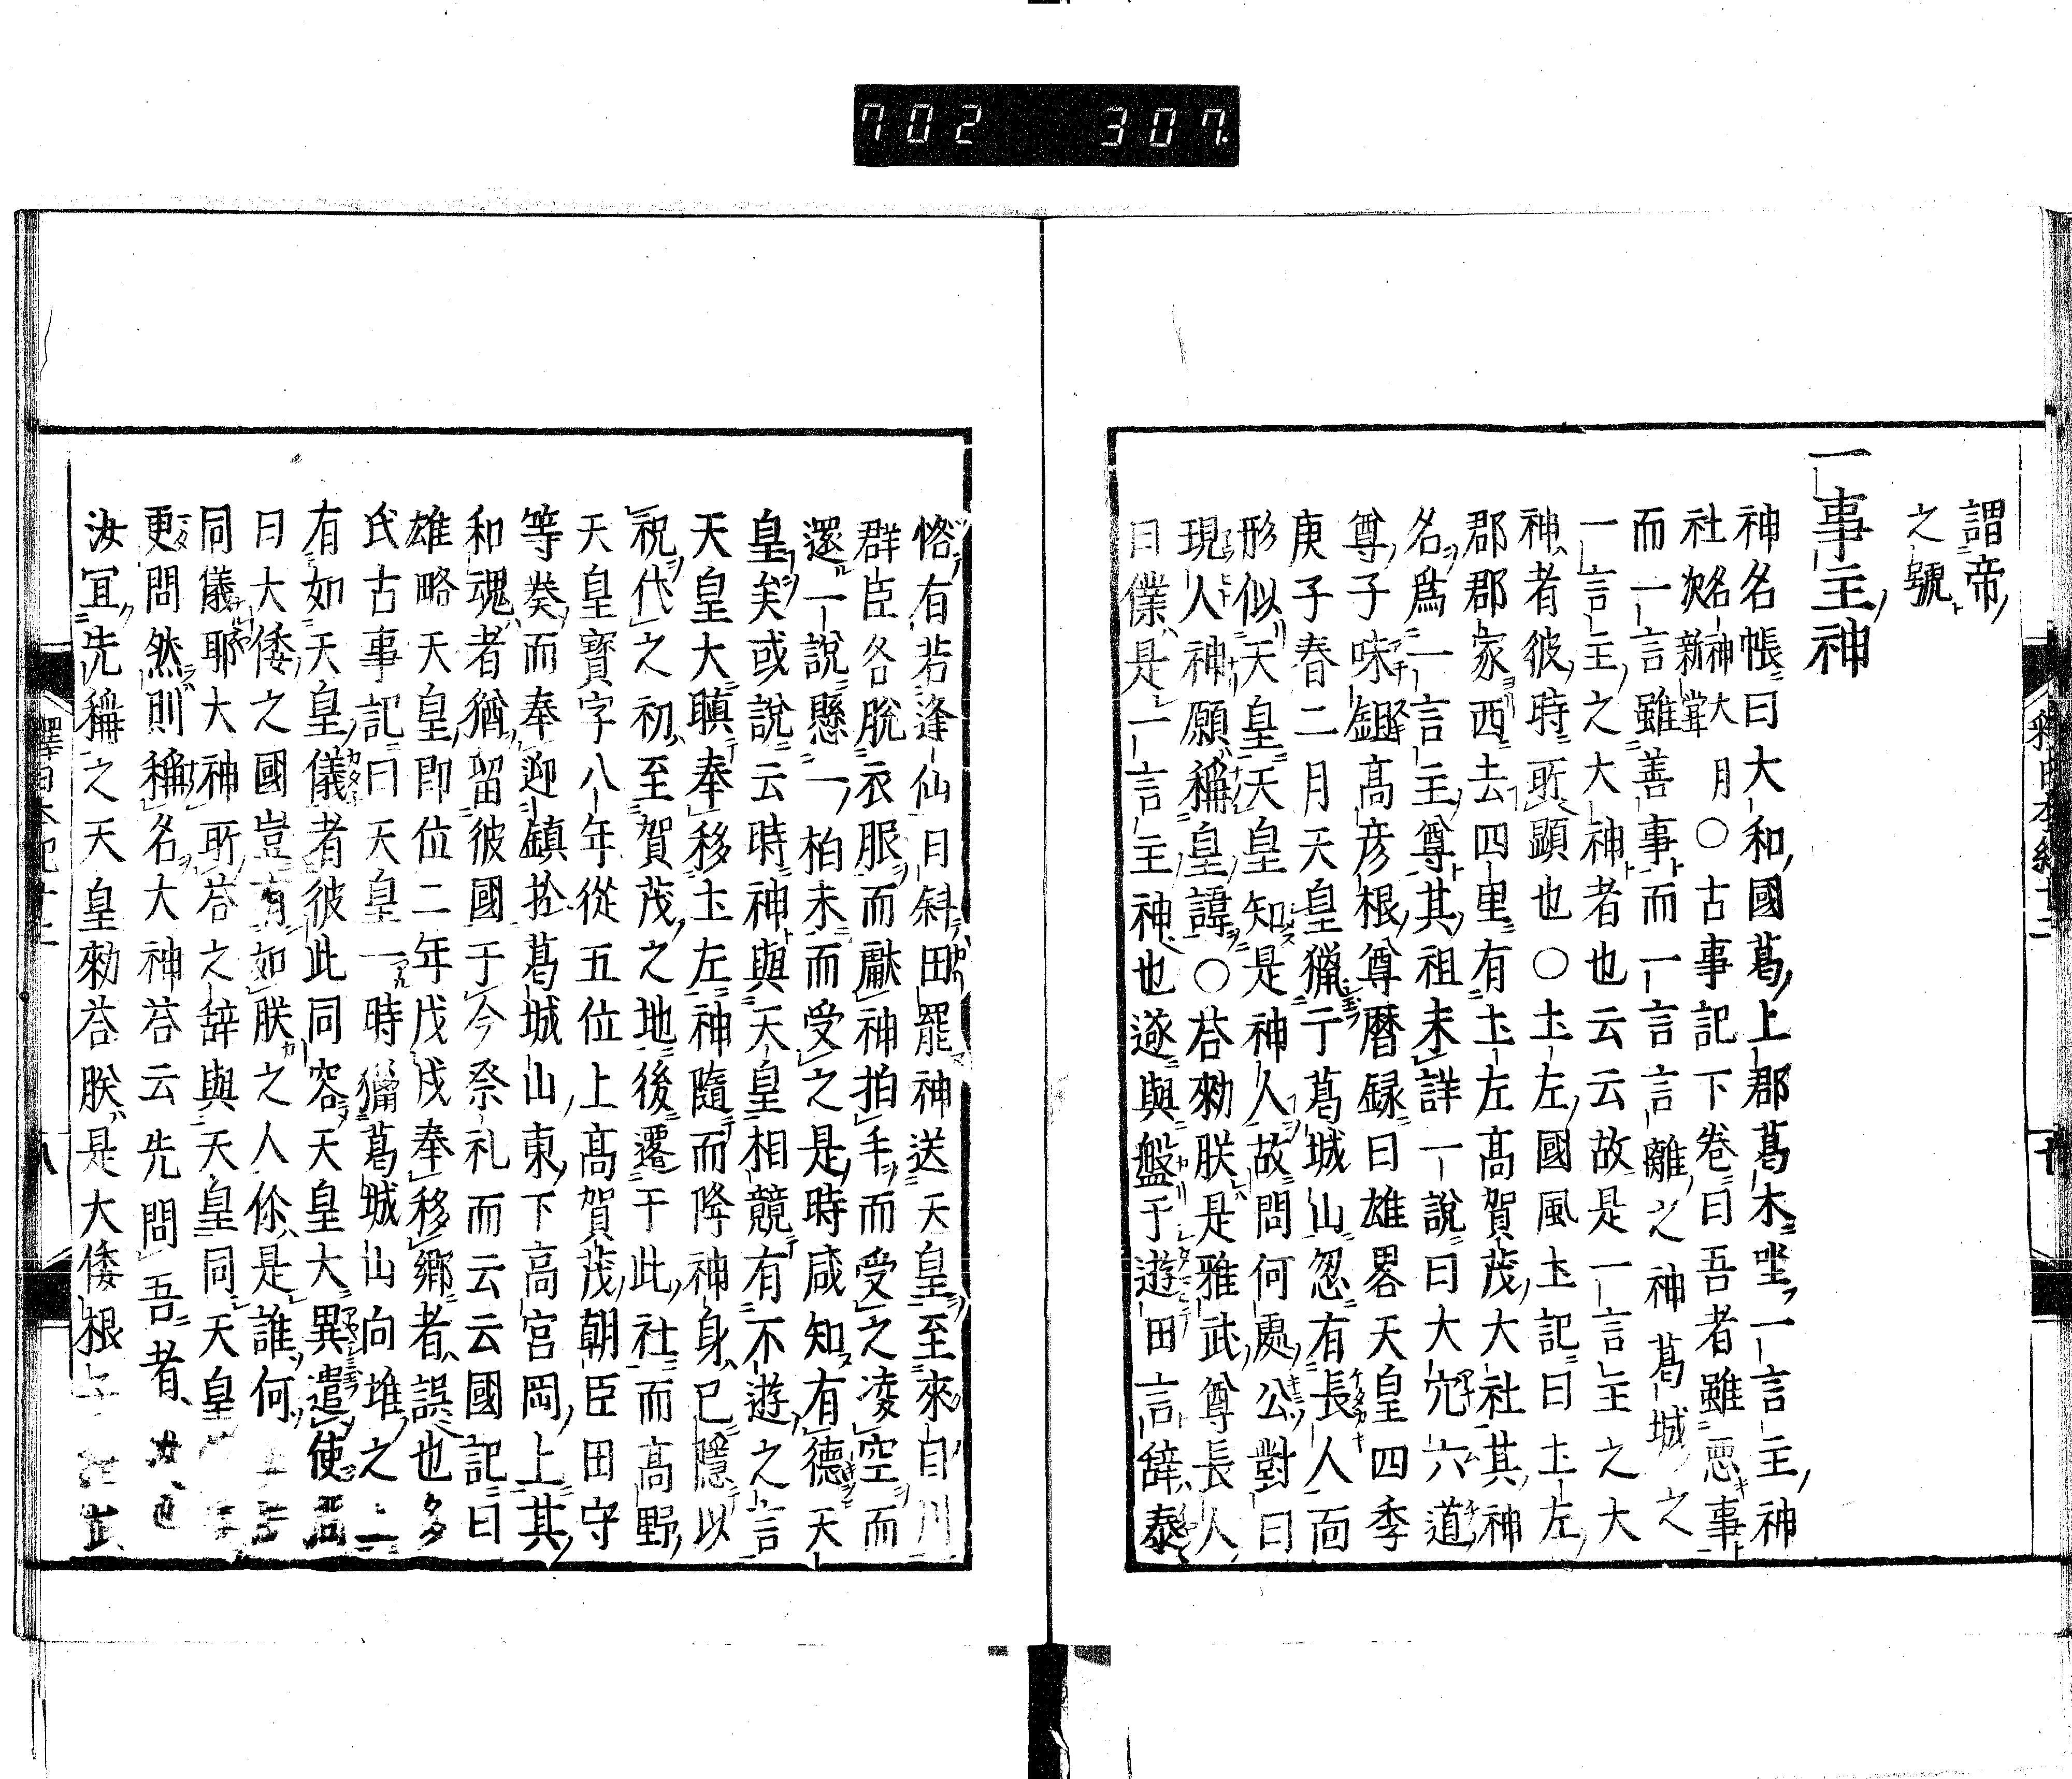 702 307
謂帝
之號
一事主神
神名帳曰大和國葛上郡葛木坐一言主神
社名神大月
次新甞○古事記下卷曰吾者雖悪事
而一言雖善事而一言言離之神葛城之
一言主之大神者也云云故是一言主之大
神者彼時所顕也○土左國風土記曰土左
郡郡家西去四里有土左髙賀茂大社其神
名爲一言主尊其祖未詳一說曰大穴六道
尊子味鉏髙彦根尊暦録曰雄畧天皇四季
庚子春二月天皇獵亍葛城山忽有長人面
形似天皇天皇知是神人故問何處公對曰
現人神願稱皇諱○荅勑朕是雅武尊長人
曰僕是一言主神也遂與盤于遊田言辞恭
恪有若逢仙日斜田罷神送天皇至來自川
群臣各脫衣服而獻神拍手而受之凌空而
還一說懸一柏未而受之是時咸知有德天
皇矣或說云時神與天皇相競有不遜之言
天皇大瞋奉移土左神隨而降神身已隱以
祝代之初至賀茂之地後遷于此社而高野
天皇寶字八年從五位上髙賀茂朝臣田守
等奏而奉迎鎮於葛城山東下高宮岡上其
和魂者猶留彼國于今祭礼而云云國記曰
雄略天皇即位二年戊戌奉移鄉者誤也多
氏古事記曰天皇一時獵葛城山向堆之上
有如天皇儀者彼此同容天皇大異遣使
曰大倭之國豈有如朕之人你是誰何
同儀耶大神所荅之辞與天皇同天皇
更問然則稱名大神荅云先問吾者
汝冝先稱之天皇勑荅朕是大倭根